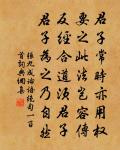 君子常時亦用權
要之此法豈容傳
反經合道須君子
君子為之乃自然
張九成論語絕句一百
首詞典網集